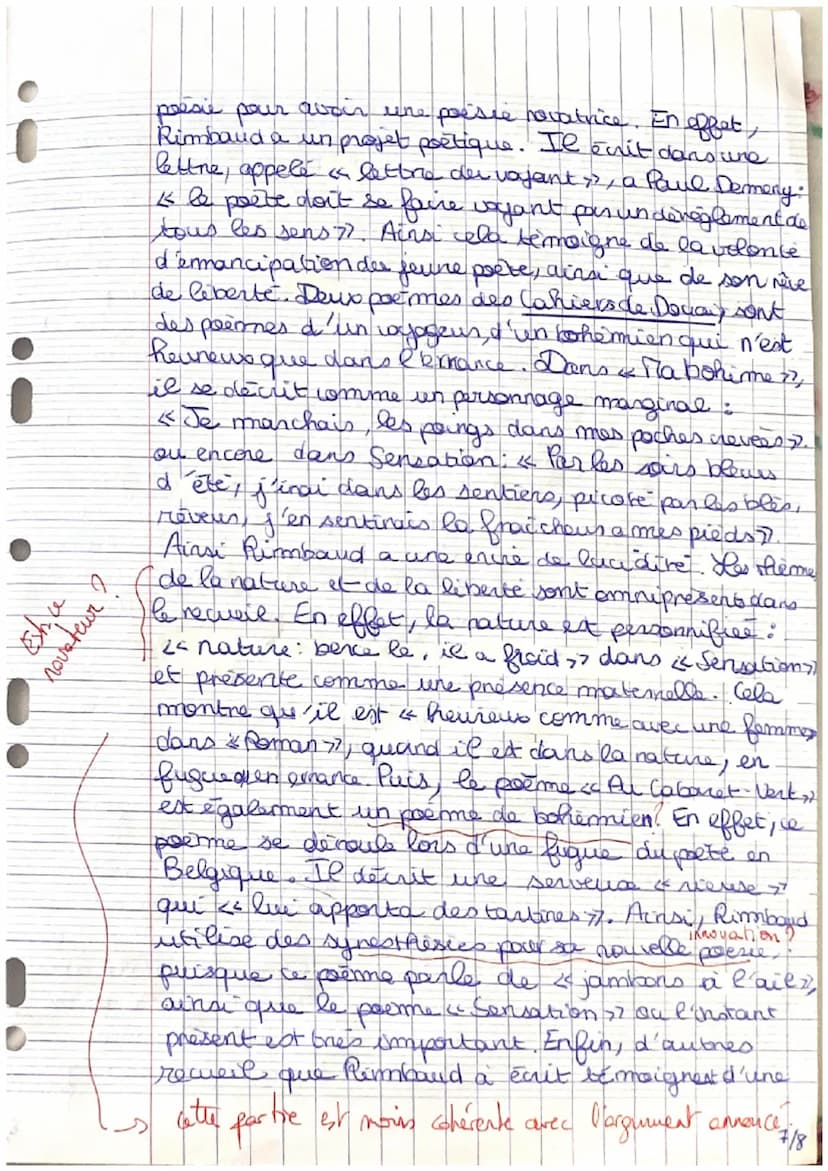 poésie pour avoir une poésie novatrice. En effet,
Rimbaud a un projet poétique. Il écrit dans une
lettre, appelé « lettre du voyant », a Paul Demeny:
« le poète doit se faire voyant par un dérèglement de
tous les sens ». Ainsi cela témoigne de la volonté
d'émancipation du jeune poète, ainsi que de son rêve
de liberté. Deux poèmes des Cahiers de Douai sont
des poèmes d'un voyageur, d'un bohémien qui n'est
heureux que dans l'errance. Dans « Ma bohime »,
il se décrit comme un personnage marginal :
« Je marchais, les poings dans mes poches crevées ».
ou encore dans Sensation: « Par les soirs bleus
d'été, j'irai dans les sentiers, picoté par les blés,
rêveur, j'en sentirais la fraîcheur a mes pieds ».
Ainsi Rimbaud a une de lucidité. Les thème
de la nature et de la liberté sont omniprésents dans
le recueil. En effet, la nature est personnifiée :
« nature: berce le, il a froid » dans « Sensation »
et présente comme une présence maternelle. Cela
montre qu'il est « heureux comme avec une femme »
dans « Roman », quand il est dans la nature, en
fugue en errance. Puis, le poème « Au Cabaret-Vert »
est également un poème de bohémien? En effet, ce
poème se déroule lors d'une fugue du poète en
Belgique. Il décrit une serveuse « rieuse »
qui « lui apporta des tartines ». Ainsi, Rimbaud
innovation?
utilise des synesthésies pour sa nouvelle poésie,
puisque ce poème parle de « jambons à l'ail »,
ainsi que le poème « Sensation » ou l'instant
présent est très important. Enfin, d'autres
recueil que Rimbaud à écrit témoignent d'une
Est-ce
novateur ?
cette partie est moins cohérente avec l'argument annoncé.
7/8